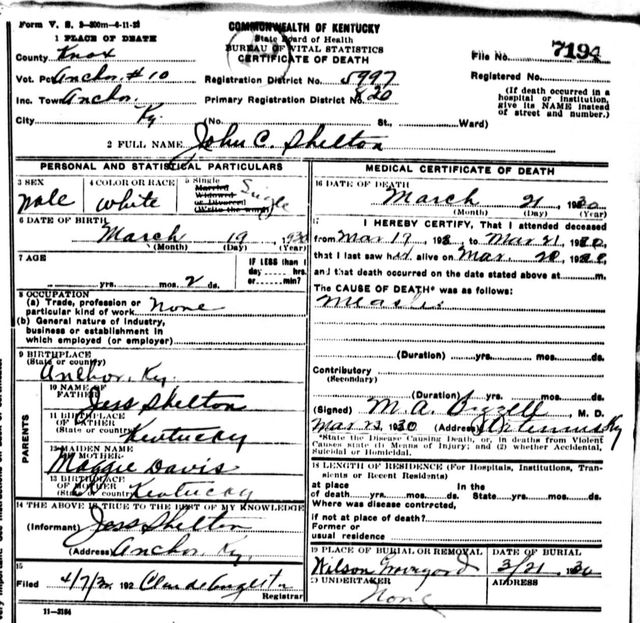 Form V. S. 2-300m-6-11-28
COMMONWEALTH OF KENTUCKY
State Board of Health
BUREAU OF VITAL STATISTICS
CERTIFICATE OF DEATH
1 PLACE OF DEATH
County Knox
File No. 7194
Vot. Pct Anchor #10
Registration District No. 5997
Registered No.
Inc. Town Anchor
Primary Registration District No. 820
(If death occurred in a hospital or institution, give its NAME instead of street and number.)
City Ky. (No. St., Ward)
2 FULL NAME John C. Shelton
PERSONAL AND STATISTICAL PARTICULARS
3 SEX
Male
4 COLOR OR RACE
White
5 Single
Married
Widowed
or Divorced
(Write the word)
Single
6 DATE OF BIRTH
March 19 1930
(Month) (Day) (Year)
7 AGE
yrs. mos. 2 ds.
IF LESS than 1
day hrs.
or min.
8 OCCUPATION
(a) Trade, profession or
particular kind of work None
(b) General nature of industry,
business or establishment in
which employed (or employer)
9 BIRTHPLACE
(State or country)
Anchor, Ky.
PARENTS
10 NAME OF
FATHER
Jess Shelton
11 BIRTHPLACE
OF FATHER
(State or country)
Kentucky
12 MAIDEN NAME
OF MOTHER
Maggie Davis
13 BIRTHPLACE
Kentucky
14 THE ABOVE IS TRUE TO THE BEST OF MY KNOWLEDGE
(Informant) Jess Shelton
(Address) Anchor, Ky.
15
Filed 4/7/30 192
Registrar
11-3184
MEDICAL CERTIFICATE OF DEATH
16 DATE OF DEATH
March 21 1930
(Month) (Day) (Year)
17
I HEREBY CERTIFY, That I attended deceased
from Mar 19 to Mar 21, 1930,
that I last saw alive on Mar. 20
and that death occurred on the date stated above at m.
The CAUSE OF DEATH* was as follows:
Measles
(Duration) yrs. mos. ds.
Contributory
(Secondary)
(Duration) yrs. mos. ds.
(Signed) M. A. M. D.
Mar 23 1930 (Address) Artemus Ky
*State the Disease Causing Death, or, in deaths from Violent
Causes state (1) Means of Injury; and (2) whether Accidental,
Suicidal or Homicidal.
18 LENGTH OF RESIDENCE (For Hospitals, Institutions, Transients or Recent Residents)
at place In the
of death yrs. mos. ds. State yrs. mos. ds.
Where was disease contrected,
if not at place of death?
Former or
usual residence
19 PLACE OF BURIAL OR REMOVAL
Wilson Graveyard
DATE OF BURIAL
3/21 1930
UNDERTAKER
None
ADDRESS